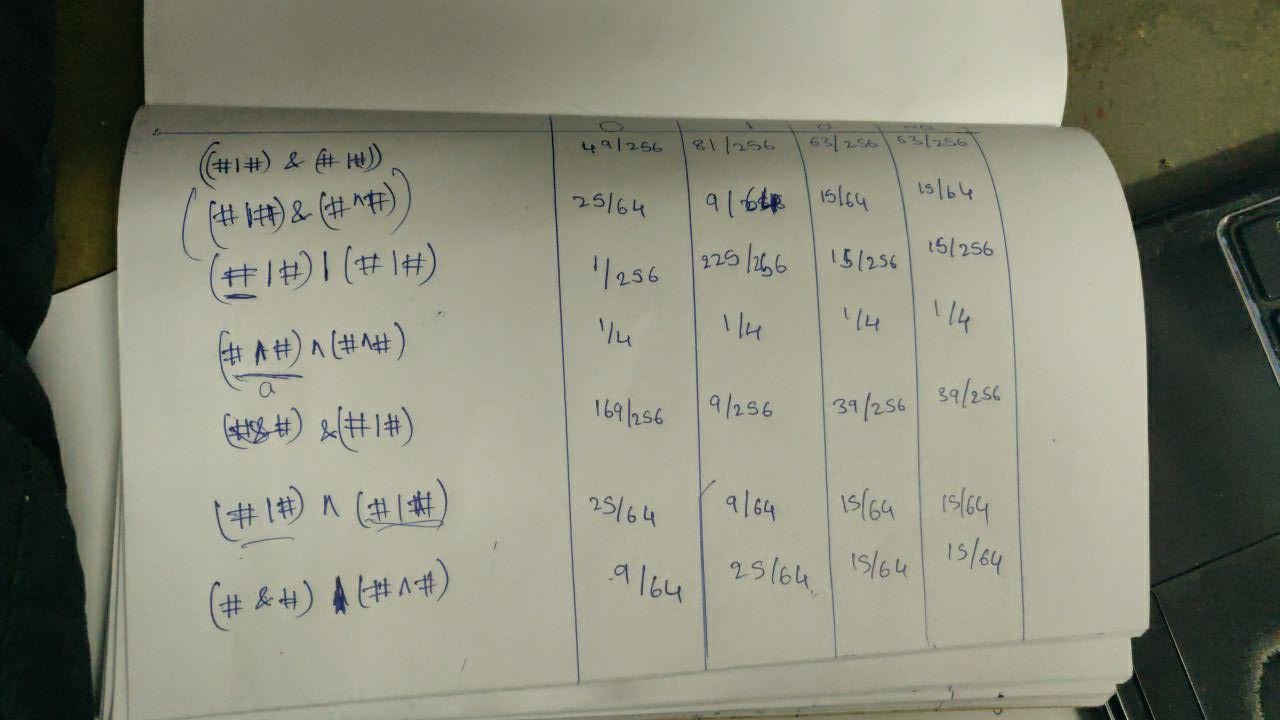 0 1
((#|#) & (#|#)) 49/256 81/256 63/256 63/256
((#|#) & (#^#)) 25/64 9/64 15/64 15/64
(#|#) | (#|#) 1/256 225/256 15/256 15/256
(#^#) ^ (#^#) 1/4 1/4 1/4 1/4
a
(#&#) & (#|#) 169/256 9/256 39/256 39/256
(#|#) ^ (#|#) 25/64 9/64 15/64 15/64
(#&#) (#^#) 9/64 25/64 15/64 15/64